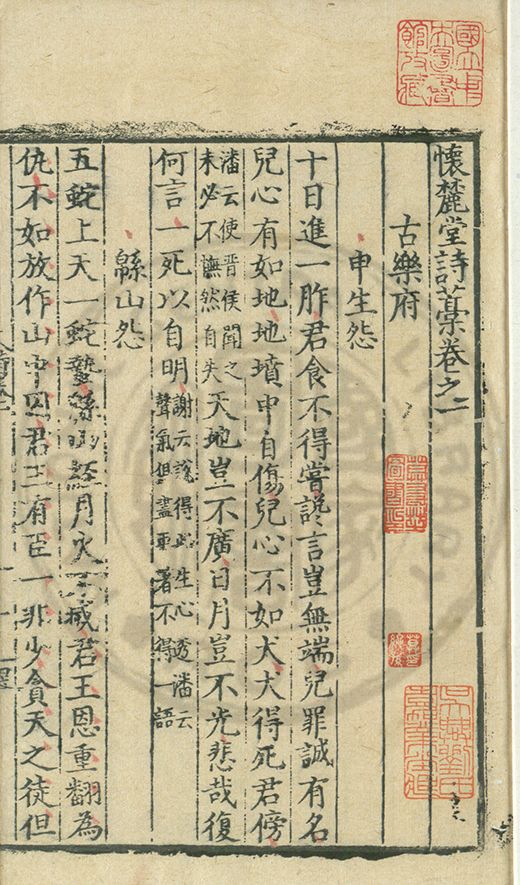 懷麓堂詩藁卷之一
古樂府
申生怨
十日進一胙君食不得嘗讒言豈無端兒罪誠有名
兒心有如地地墳中自傷兒心不如犬犬得死君傍
潘云使晋侯聞之
未必不憮然自失
天地豈不廣日月豈不光悲哉復
何言一死以自明
謝云說得此生心透潘云
聲氣但盡更著不得一語
緜山怨
五蛇上天一蛇蟄緜山經月火不滅君王恩重翻為
仇不如放作山中囚君王有臣一非少貪天之徒但
國立中
央圖書
館攷藏